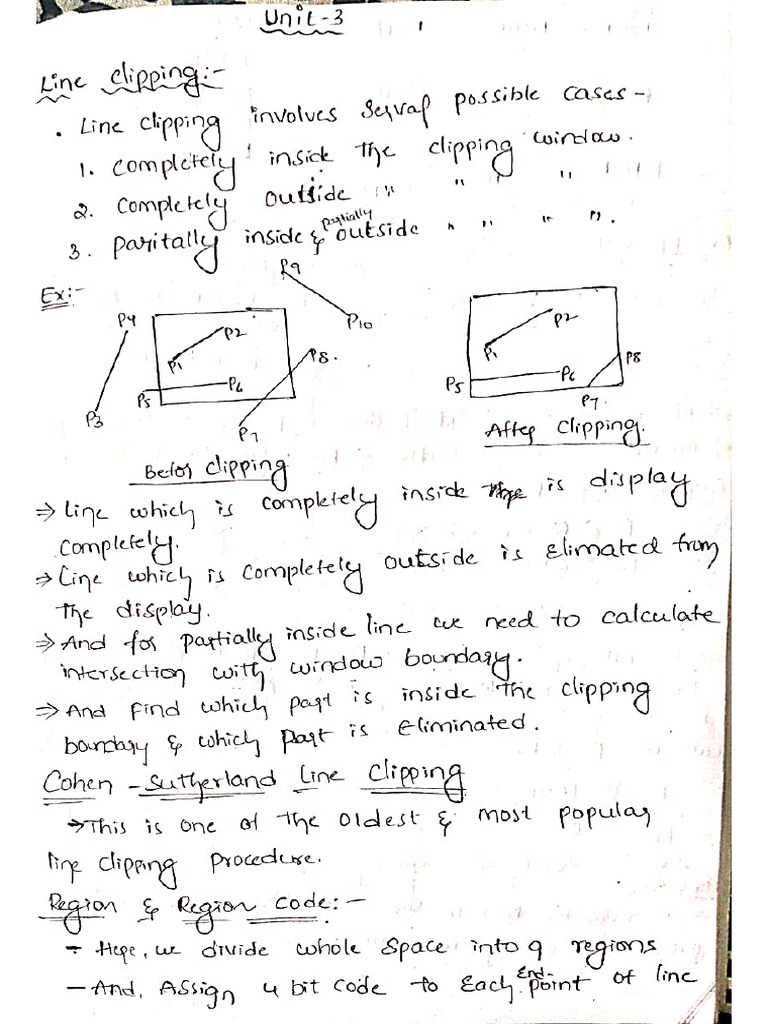 Unit-3
Line Clipping:-
. Line Clipping involves Serval possible cases -
1. Completely inside the clipping window.
2. Completely outside " " " "
3. Paritally inside & partially outside " " " ".
Ex:-
P9
P4 P2 P10 P2
P1 P8. P1 P8
P5 P6 P5 P6
P3 P7 P7
After Clipping.
Befor Clipping
⇒ Line which is completely inside is display
completely.
⇒ Line which is completely outside is Elimated from
the display.
⇒ And for partially inside line we need to calculate
intersection with window boundary.
⇒ And Find which part is inside the clipping
boundary & which part is eliminated.
Cohen - Sutherland Line Clipping
→ This is one of the oldest & most popular
line clipping procedure.
Region & Region Code:-
- Here, we divide whole Space into 9 regions
- And, Assign 4 bit code to Each End-point of line